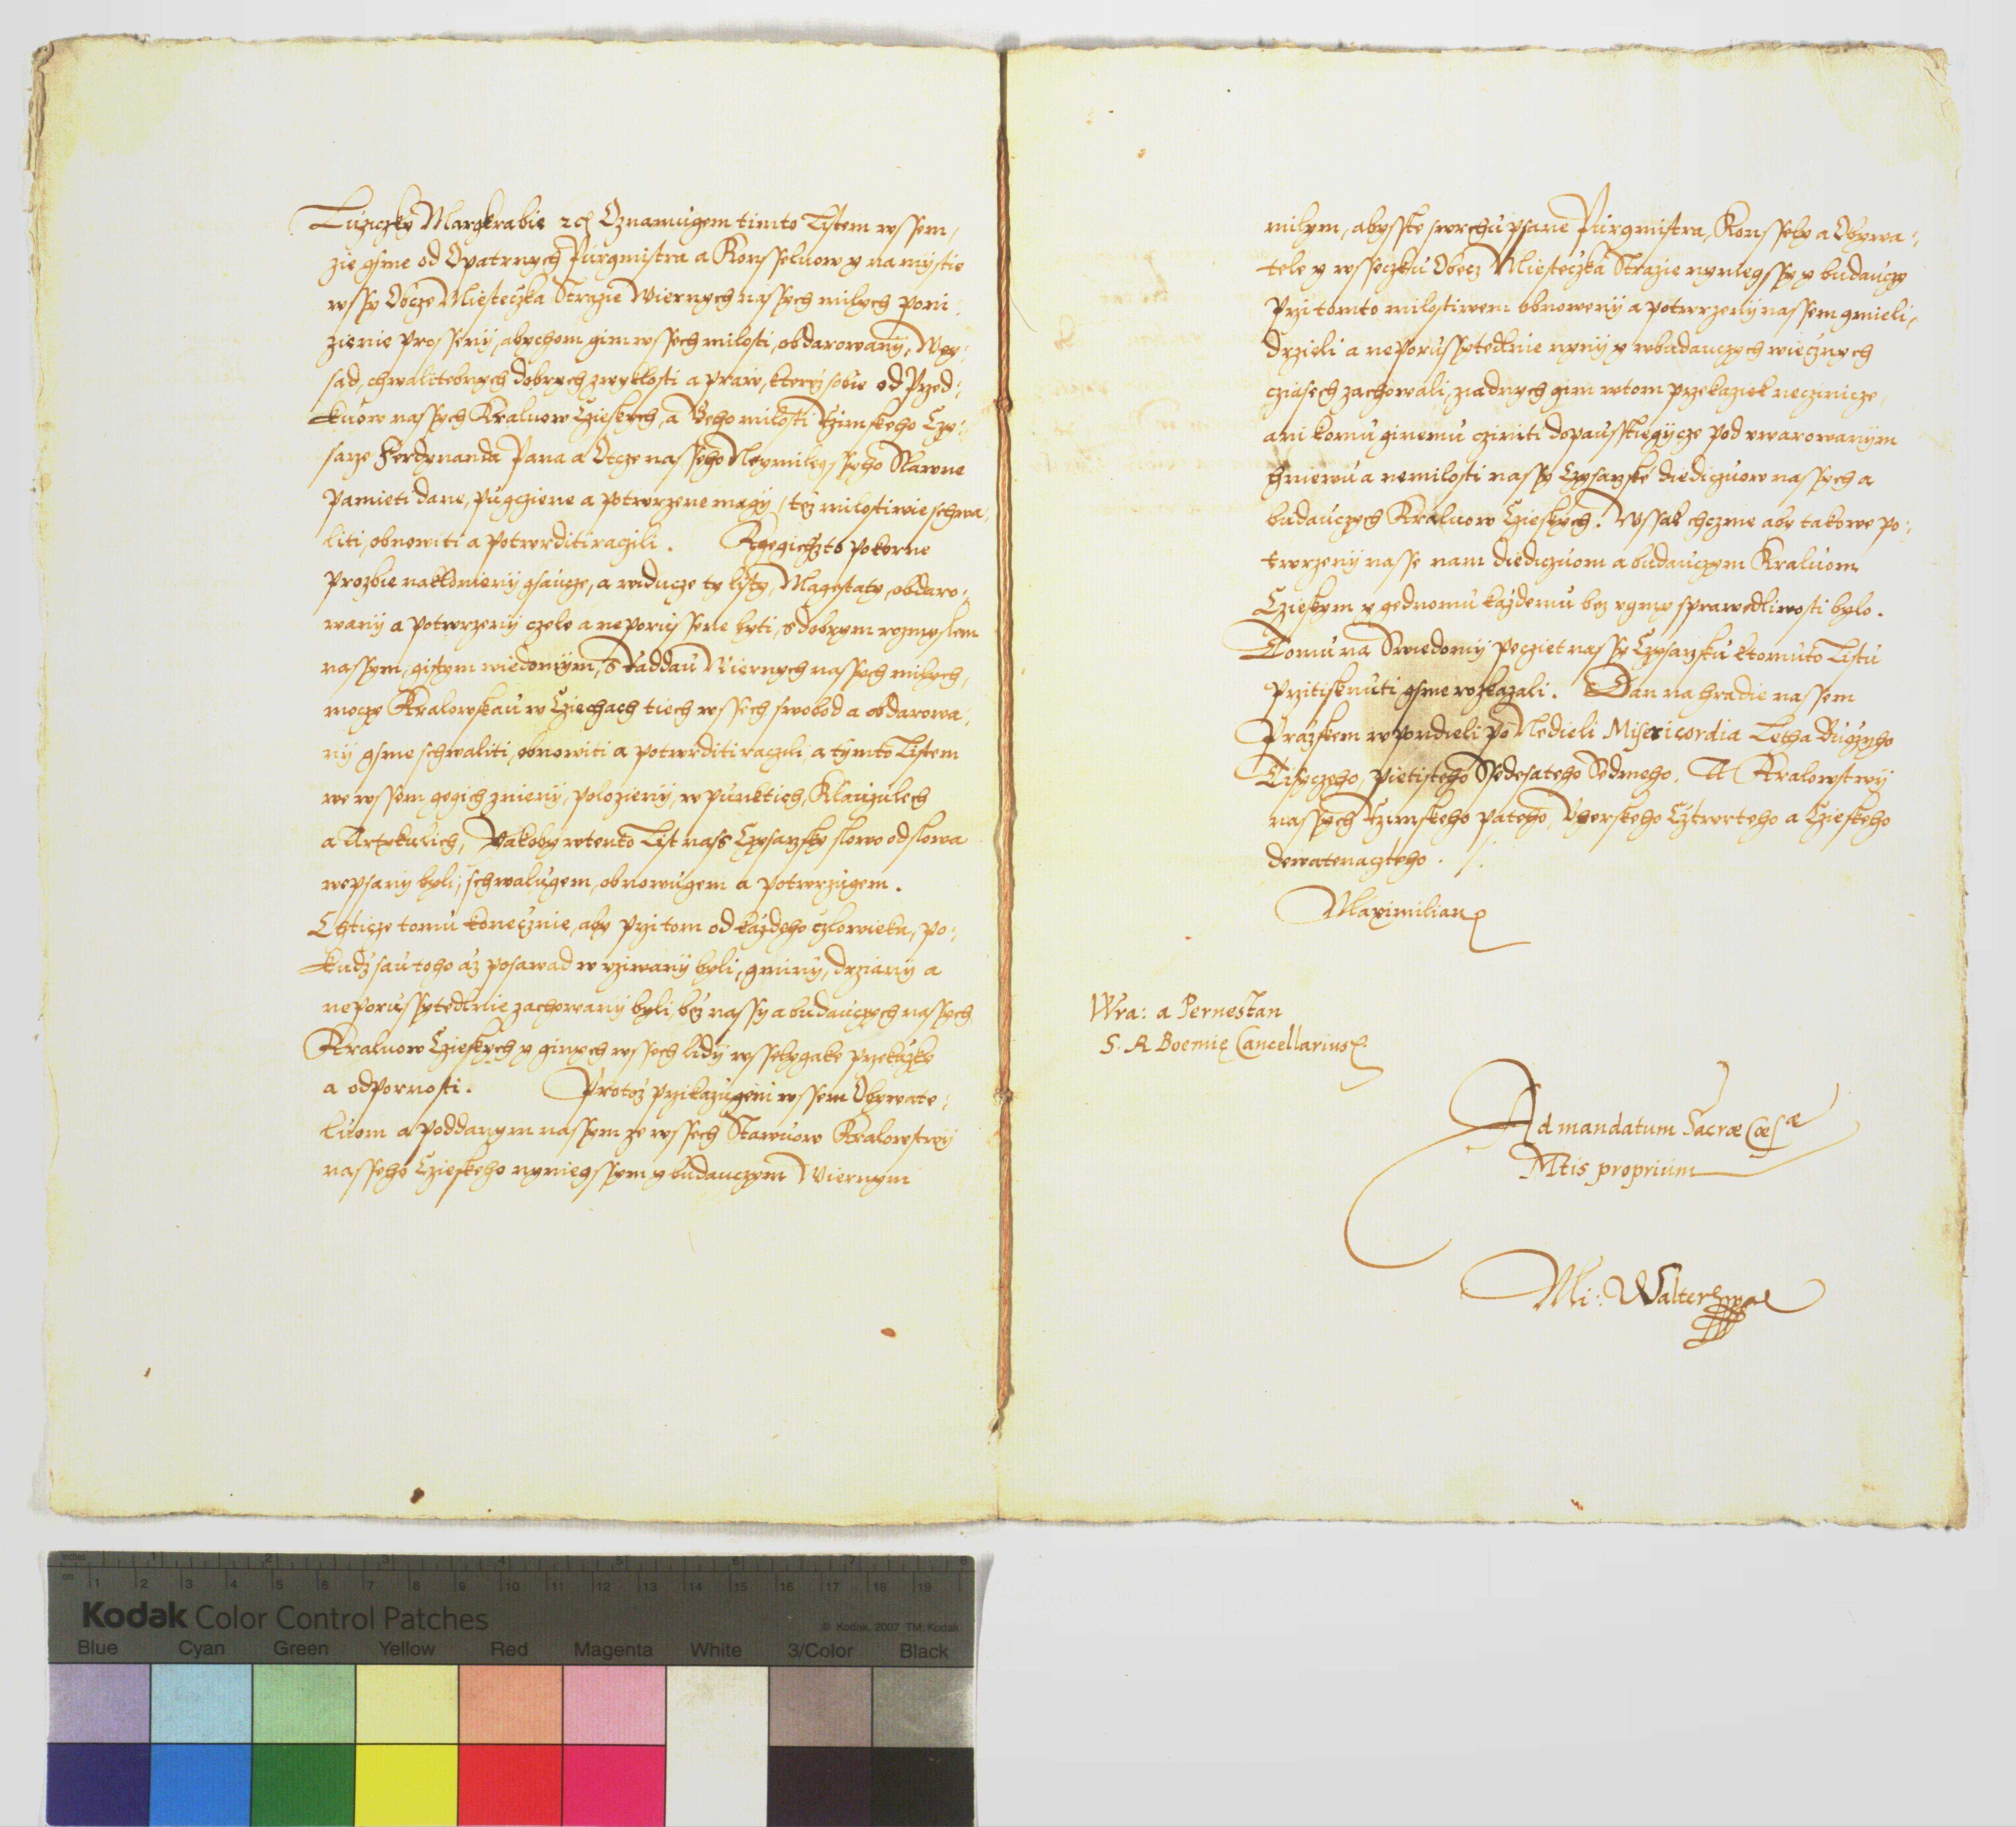 Luziczky Margkrabie ⁊cꝭ Oznamugem timto Listem wssem,
zie gsme od Opatrnych Purgmistra a Konsseluow y na mystie
wssy Obcze Miesteczka Strazie Wiernych nassych milych poni:
zienie prosseny, abychom gim wssech milosti, obdarowany, Wey:
sad, chwalitebnych dobrych zwyklosti a praw, kterez sobie od Przed:
kuow nassych Kraluow Czieskych, a Geho milosti Rzimskeho Czy:
sarze Ferdynanda Pana a Otcze nasseho Neymilegssyho Slawne
pamieti dane, pugcziene a potwrzene magy, tez milostiwie schwa:
liti, obnowiti a potwrditi raczili. K gegichzto pokorne
prozbie naklonieny gsaucze, a widucze ty listy, Magestaty, obdaro:
wany a potwrzeny czele a neporussene byti, s dobrym rozmyslem
nassym, gistym wiedomym, s Raddau Wiernych nassych milych,
moczy Kralowskau w Cziechach tiech wssech swobod a obdarowa:
ny gsme schwaliti, obnowiti a potwrditi raczili, a tymto Listem
we wssem gegich znieny, polozieny, w punktich, Klauzulech
a Artykulich, Yakoby w tento List nass Czysarzsky slowo od slowa
wepsany byli, schwalugem, obnowugem a potwrzugem.
Chticze tomu konecznie, aby przi tom od kazdeho czlowieka, po:
kudz sau toho az posawad w vziwany byli, gmyny, drziany a
neporussytedlnie zachowany byli, bez nassy a budauczych nassych
Kraluow Czieskych y ginych wssech lidy wsselygake przekazky
a odpornosti. Protoz przikazugem wssem Obywate:
luom a poddanym nassym ze wssech Stawuow Kralowstwy
nasseho Czieskeho nyniegssym y budauczym Wiernym
milym, abysste swrchupsane Purgmistra, Konssely a Obywa:
tele y wsseczku Obecz Miesteczka Strazie nyniegssy y budauczy
Przi tomto milostiwem obnoweny a potwrzeny nassem gmieli,
drzieli a neporussytedlnie nyny y w budauczych wiecznych
cziasech zachowali, ziadnych gim w tom przekaziek necziniecze,
ani komu ginemu cziniti dopausstiegicze pod vwarowanym
hniewu a nemilosti nassy Czysarzske diediczuow nassych a
budauczych Kraluow Czieskych. Wssak chczme aby takowe po:
twrzeny nasse nam diediczuom a budauczym Kraluom
Czieskym y gednomu kazdemu bez vgmy sprawedliwosti bylo.
Tomu na Swiedomy Peczet nassy Czysarzsku k tomuto Listu
Przitisknuti gsme rozkazali. Dan na hradie nassem
Prazskem w pondieli po Nedieli Misericordia Letha Buozyho
Tisyczeho, pietisteho Ssedesateho Sedmeho. A Kralowstwy
nassych Rzimskeho pateho, Vherskeho Cztwrteho a Czieskeho
dewatenaczteho ./.
Maximilian
Wra: a Pernestan
S. R Boemię Cancellarius
Ad mandatum Sacræ Cæsæ
Mtis proprium
Mi: Walter